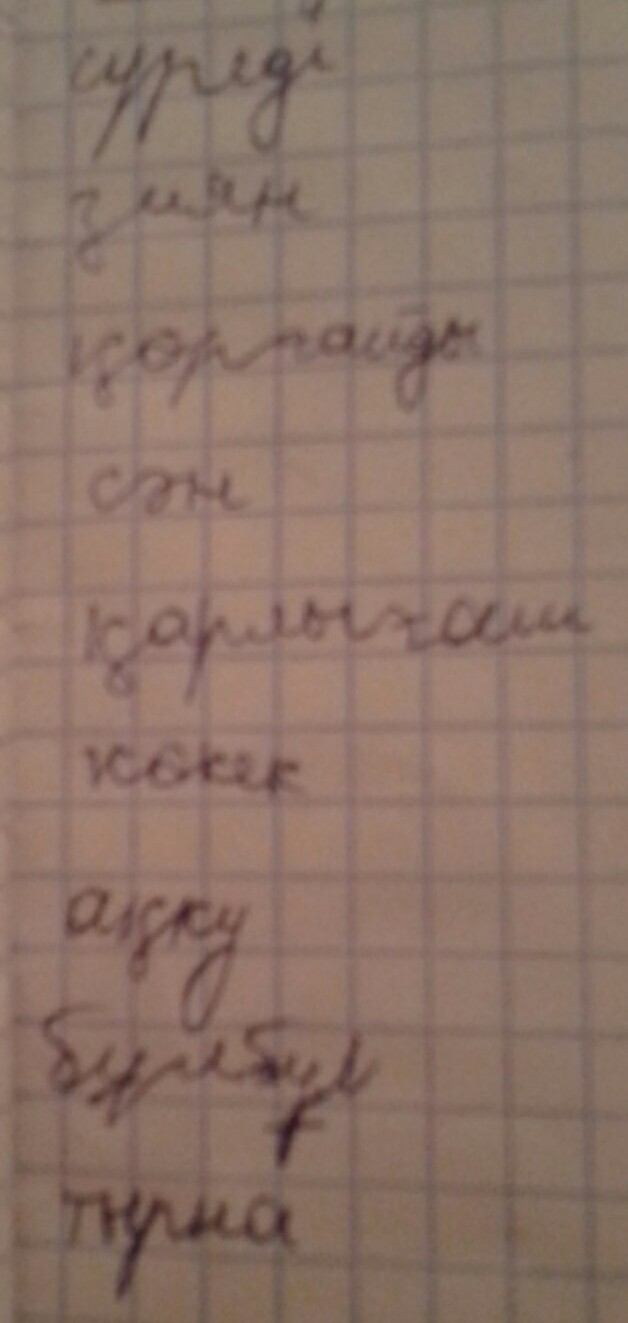 сүреді
зиян
қорғайды
сән
қарлығаш
көкек
аққу
бұлбұл
тырна